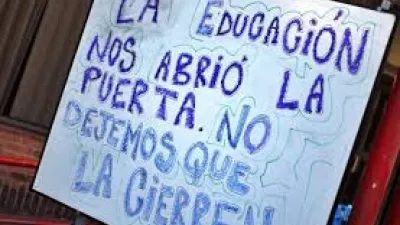 LA EDUCACIÓN
NOS ABRIÓ LA
PUERTA. NO
DEJEMOS QUE
LA CIERREN